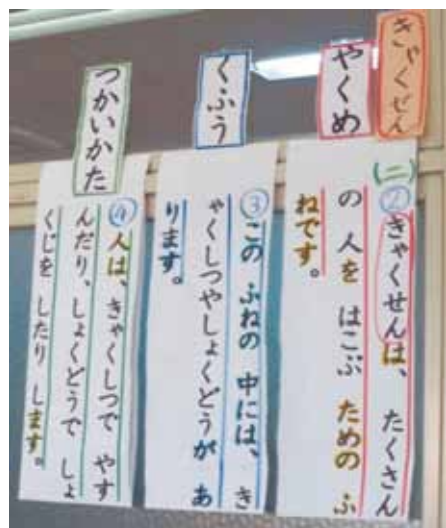 きゃくせん
やくめ
(二)
②きゃくせんは、たくさん
の 人を はこぶ ための ふ
ねです。
くふう
③この ふねの 中には、き
ゃくしつやしょくどうが あ
ります。
つかいかた
④人は、きゃくしつで やす
んだり、しょくどうで しょ
くじを したり します。